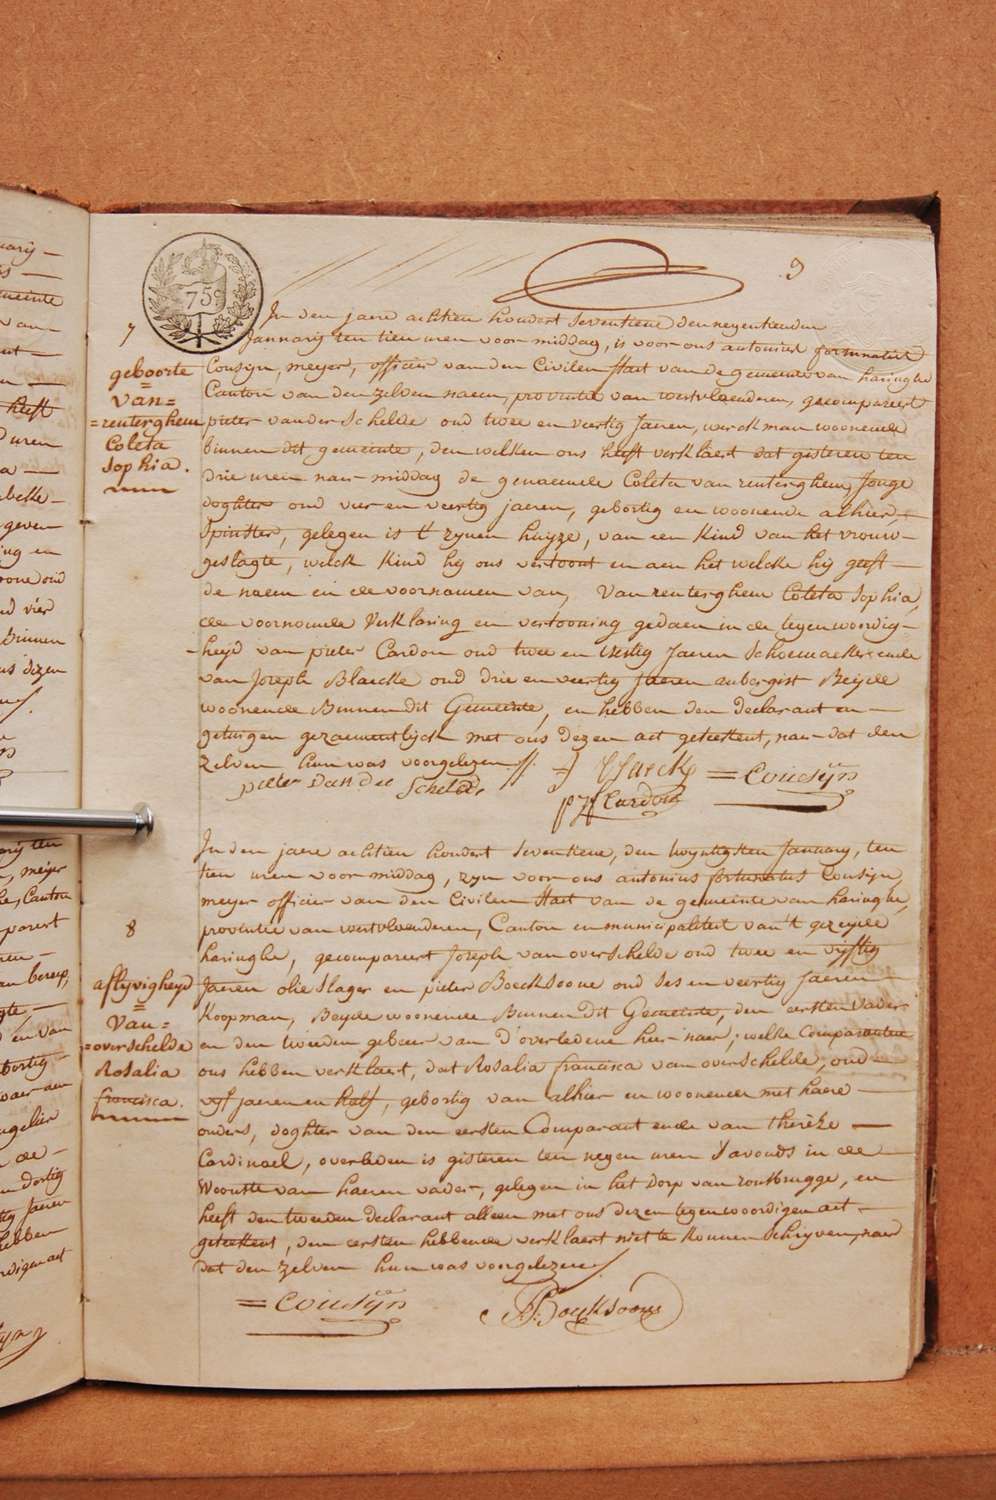 9
75
7
geboorte
van=
=renterghem
Coleta
Sophia.
In den jaere achtien hondert seventiene den negentienden
January ten tien uren voor middag, is voor ons antonius fortunatus
Cousyn, meyer, officier van den Civilen staet van de gemeente van haringhe
Canton van den zelven naem, provintie van westvlaenderen, gecompareert
pieter vander Schelde oud twee en veertig Jaeren, werckman woonende
binnen dit gemeente, den welken ons heeft verklaert dat gisteren ten
drie uren naer middag de genaemde Coleta van renterghem, Jonge
doghter oud vier en veertig jaeren, gebortig en woonende alhier,
Spinster, gelegen is t' zynen huyze, van een kind van het vrouw-
geslagte, welck kind hy ons vertoont en aen het welcke hy geeft -
de naem en de voornamen van, Van renterghem Coleta Sophia,
de voornoemde Verklaring en vertooning gedaen in de tegenwoordig-
-heyd van pieter Cardon oud twee en veertig Jaeren Schoemaeker ende
van Joseph Blaecke oud drie en veertig Jaeren aubergist Beyde
woonende Binnen dit Gemeente, en hebben den declarant en -
getuigen gezaementlyck met ons dezen act geteekent, naer dat den
zelven hun was voorgelezen //.
pieter Van der Schelde
= Cousyn
p J Cardon
8
aflyvigheyd
Van=
=overschelde
Rosalia
francisca.
In den jaere achtien hondert seventiene, den twyntigsten January, ten
tien uren voor middag, zyn voor ons antonius fortunatus Cousyn,
meyer officier van den Civilen staet van de gemeente van haringhe,
provintie van westvlaenderen, Canton en municipaliteit van 't gezeyde
haringhe, gecompareert Joseph van overschelde oud twee en vyftig
Jaeren olieslager en pieter Boecksoone oud ses en veertig Jaeren
koopman, Beyde woonende Binnen dit Gemeente, den eersten vader
en den tweeden gebeur van d'overledene hier naer; welke Comparanten
ons hebben verklaert, dat Rosalia francisca van overschelde, oud
vyf jaeren en half, gebortig van alhier en woonende met haere -
ouders, doghter van den eersten Comparant ende van Therèse -
Cardinael, overleden is gisteren ten negen uren s'avonds in de
Woonste van haeren vader, gelegen in het Dorp van rousbrugge, en
heeft den tweeden declarant alleen met ons dezen tegenwoordigen act -
geteekent, den eersten hebbende verklaert niet te konnen Schryven, naer
dat den zelven hun was voorgelezen /.
= Cousyn
P: Boecksoone